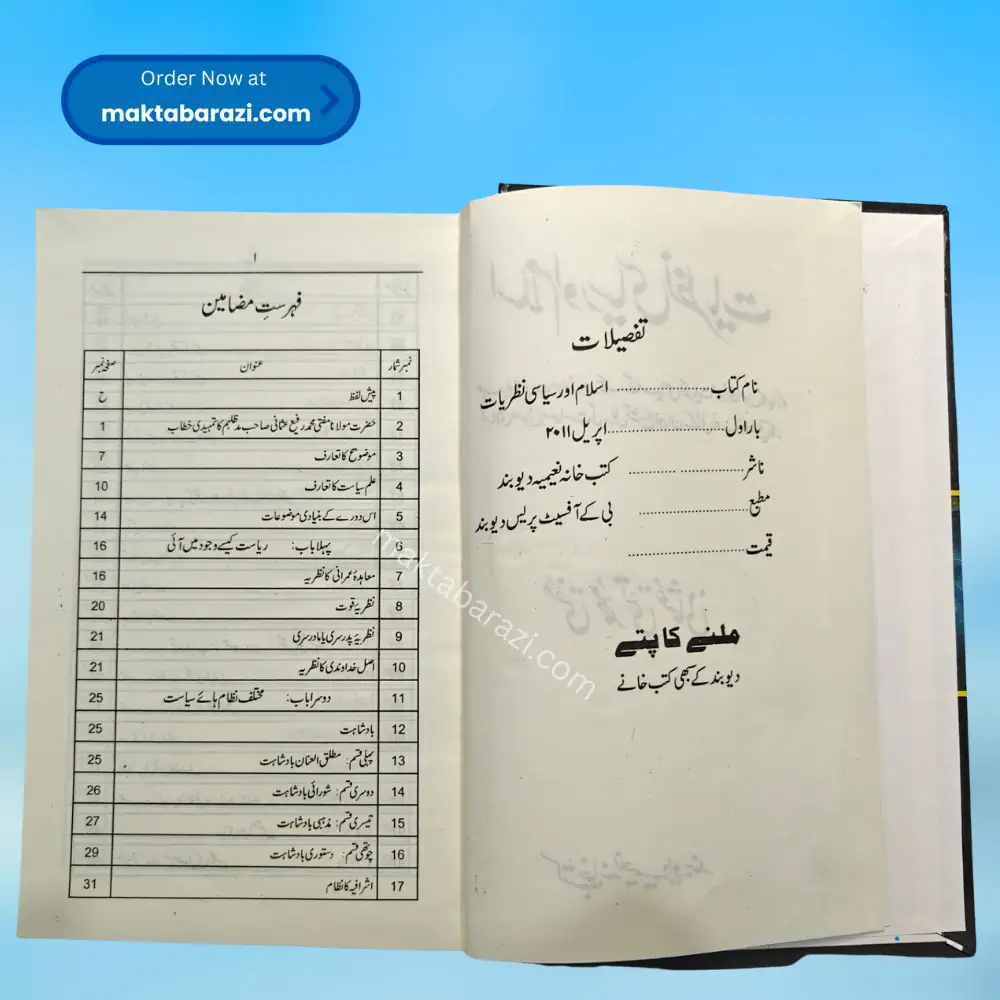 Order Now at
maktabarazi.com
تفصیلات
نام کتاب ........................ اسلام اور سیاسی نظریات
بار اول ........................ اپریل ۲۰۱۱
ناشر ........................ کتب خانہ نعیمیہ دیوبند
مطبع ........................ بی کے آفسیٹ پریس دیوبند
قیمت ........................
ملنے کا پتے
دیوبند کے سبھی کتب خانے
ا
فہرستِ مضامین
نمبر شمار عنوان صفحہ نمبر
1 پیش لفظ ح
2 حضرت مولانا مفتی محمد رفیع عثمانی صاحب مدظلہم کا تمہیدی خطاب 1
3 موضوع کا تعارف 7
4 علم سیاست کا تعارف 10
5 اس دورے کے بنیادی موضوعات 14
6 پہلا باب: ریاست کیسے وجود میں آئی 16
7 معاہدۂ عمرانی کا نظریہ 16
8 نظریۂ قوت 20
9 نظریۂ پدرسری یا مادرسری 21
10 اصل خداوندی کا نظریہ 21
11 دوسرا باب: مختلف نظام ہائے سیاست 25
12 بادشاہت 25
13 پہلی قسم: مطلق العنان بادشاہت 25
14 دوسری قسم: شورائی بادشاہت 26
15 تیسری قسم: مذہبی بادشاہت 27
16 چوتھی قسم: دستوری بادشاہت 29
17 اشرافیہ کا نظام 31
maktabarazi.com